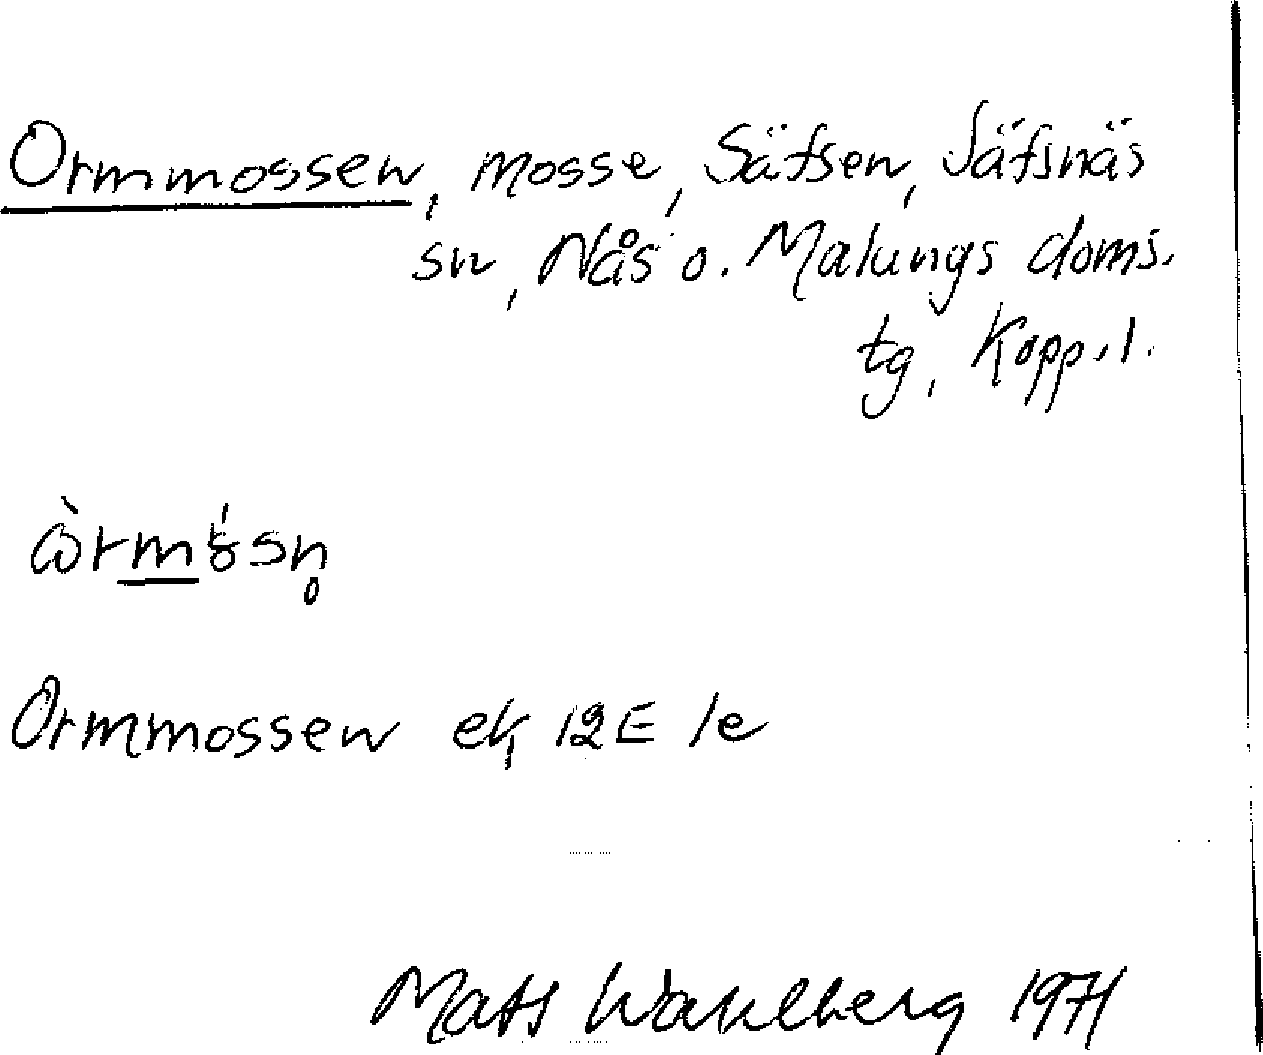 Ormmossen, mosse, Säfsen, Säfsnäs
sn, Nås o. Malungs doms.
tg, Kopp.l.
Ormmossen ek 12E 1e
Mats Wahlberg 1971